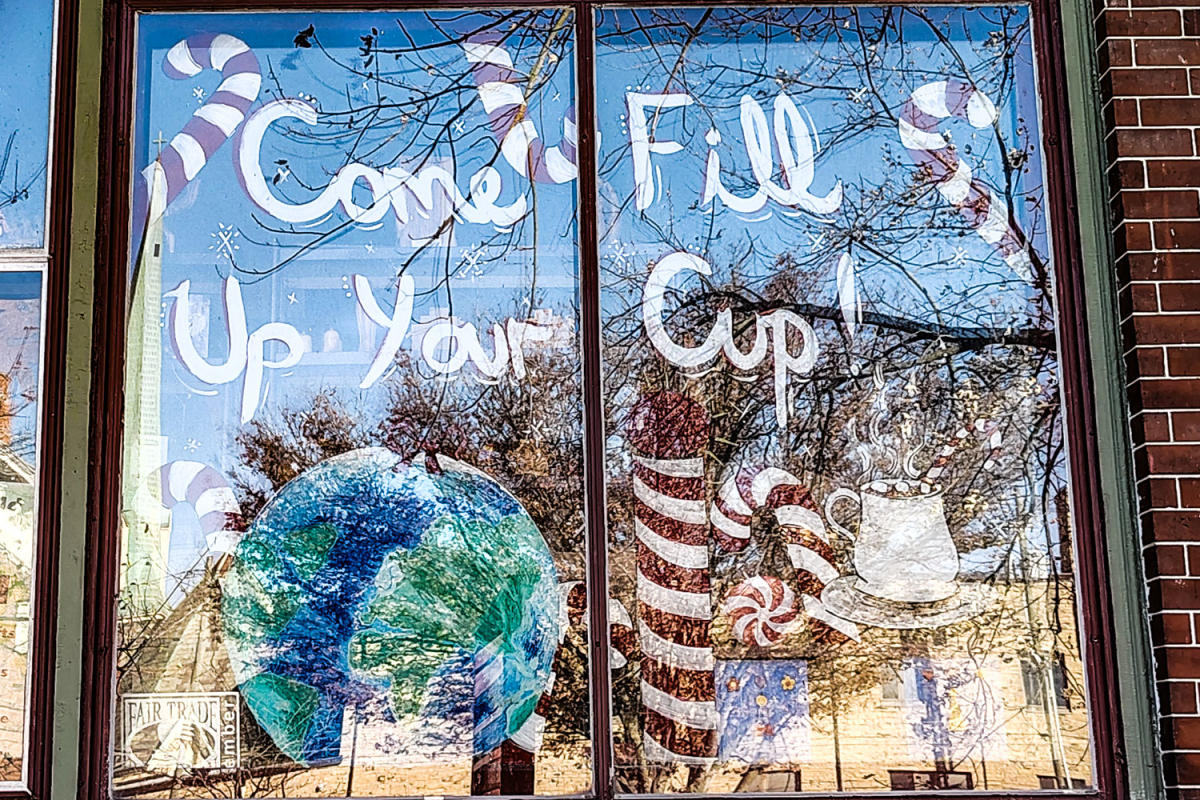 Come Fill
Up Your Cup!
FAIR TRADE